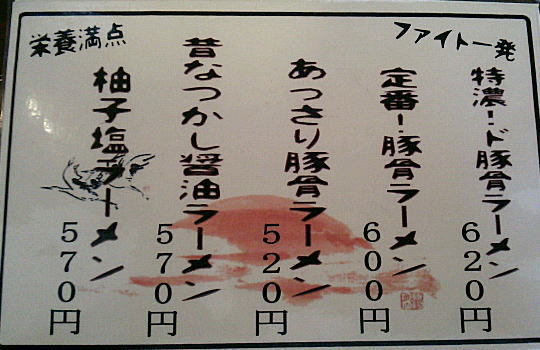 ファイト一発
特濃！ド豚骨ラーメン
620円
定番！豚骨ラーメン
600円
あっさり豚骨ラーメン
520円
昔なつかし醤油ラーメン
570円
柚子塩ラーメン
570円
栄養満点